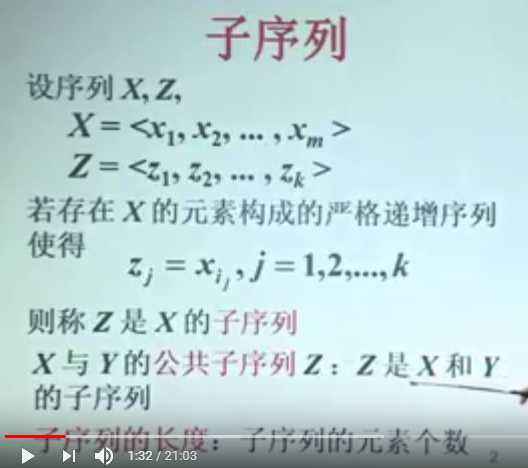 子序列
设序列 X, Z,
X = <x₁, x₂, ... , xₘ >
Z = <z₁, z₂, ... , zₖ >
若存在 X 的元素构成的严格递增序列
使得
zⱼ = x_{i_j} , j = 1,2,...,k
则称 Z 是 X 的子序列
X 与 Y 的公共子序列 Z：Z 是 X 和 Y
的子序列
子序列的长度：子序列的元素个数
1:32 / 21:03
2